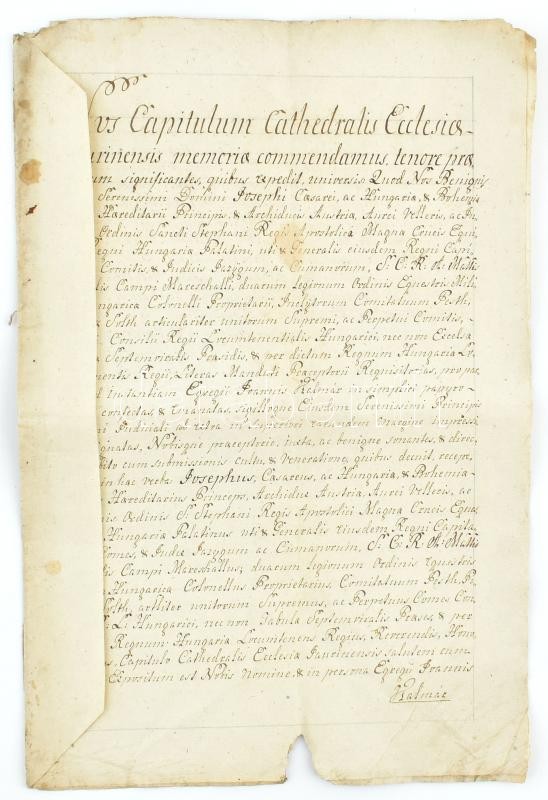 vs Capitulum Cathedralis Ecclesiæ
urinensis memoriæ commendamus, tenore præ
um significantes, quibus expedit, universis Quod Nos Benignis
Serenissimi Domini Josephi Cæsarei, ac Hungariæ, & Bohemiæ
Hæreditarii Principis, & Archiducis Austriæ, Aurei Velleris, ac In
Ordinis Sancti Stephani Regis Apostolici Magnæ Crucis Equi
Regni Hungariæ Palatini, uti & Generalis ejusdem Regni Capi
Comitis, & Judicis Jazygum, ac Cumanorum, S. C. R. A. Mattis
lis Campi Mareschalli, duarum Legionum Ordinis Equestris Mili
ngarica Colonelli Proprietarii, Inclytorum Comitatuum Pesth,
& Solth articulariter unitorum Supremi, ac Perpetui Comitis,
Consilii Regii Locumtenentialis Hungarici, nec non Excelsæ
æ Septemviralis Præsidis, & per dictum Regnum Hungariæ Lo
nentis Regii, Literas Mandati Præceptorii Requisitorias, pro par
d Instantiam Egregii Joannis Kalmár in simplici papyro
confectas, & Emanatas, sigilloque Ejusdem Serenissimi Principis
ni Judiciali in Inferiori earundem margine impressi
ignatas, Nobisque præceptorie, juxta, ac benigne sonantes, & direc
bito cum submissionis cultu, & Veneratione, quibus decuit, recepe
in hæc verba Josephus, Cæsareus, ac Hungariæ, & Bohemiæ
Hæreditarius Princeps, Archidux Austriæ, Aurei Velleris, ac
nis Ordinis S. Stephani Regis Apostolici Magnæ Crucis Eque
Hungariæ Palatinus uti & Generalis Ejusdem Regni Capita
Comes, & Judex Jazygum ac Cumanorum, S. C. R. A. Mattis
lis Campi Mareshallus, duarum legionum Ordinis Equestris
Hungaricæ Colonellus Proprietarius, Comitatuum Pesth, Pi
Solth, artliter unitorum Supremus, ac Perpetuus Comes Con
R. Lt. Hungarici, nec non Tabulæ Septemviralis Præses, & per
Regnum Hungariæ Locumtenens Regius, Reverendis, Hono
s, Capitulo Cathedralis Ecclesiæ Jaurinensis salutem cum
Expositum est Nobis Nomine, & in persona Egregii Joannis
Kalmar